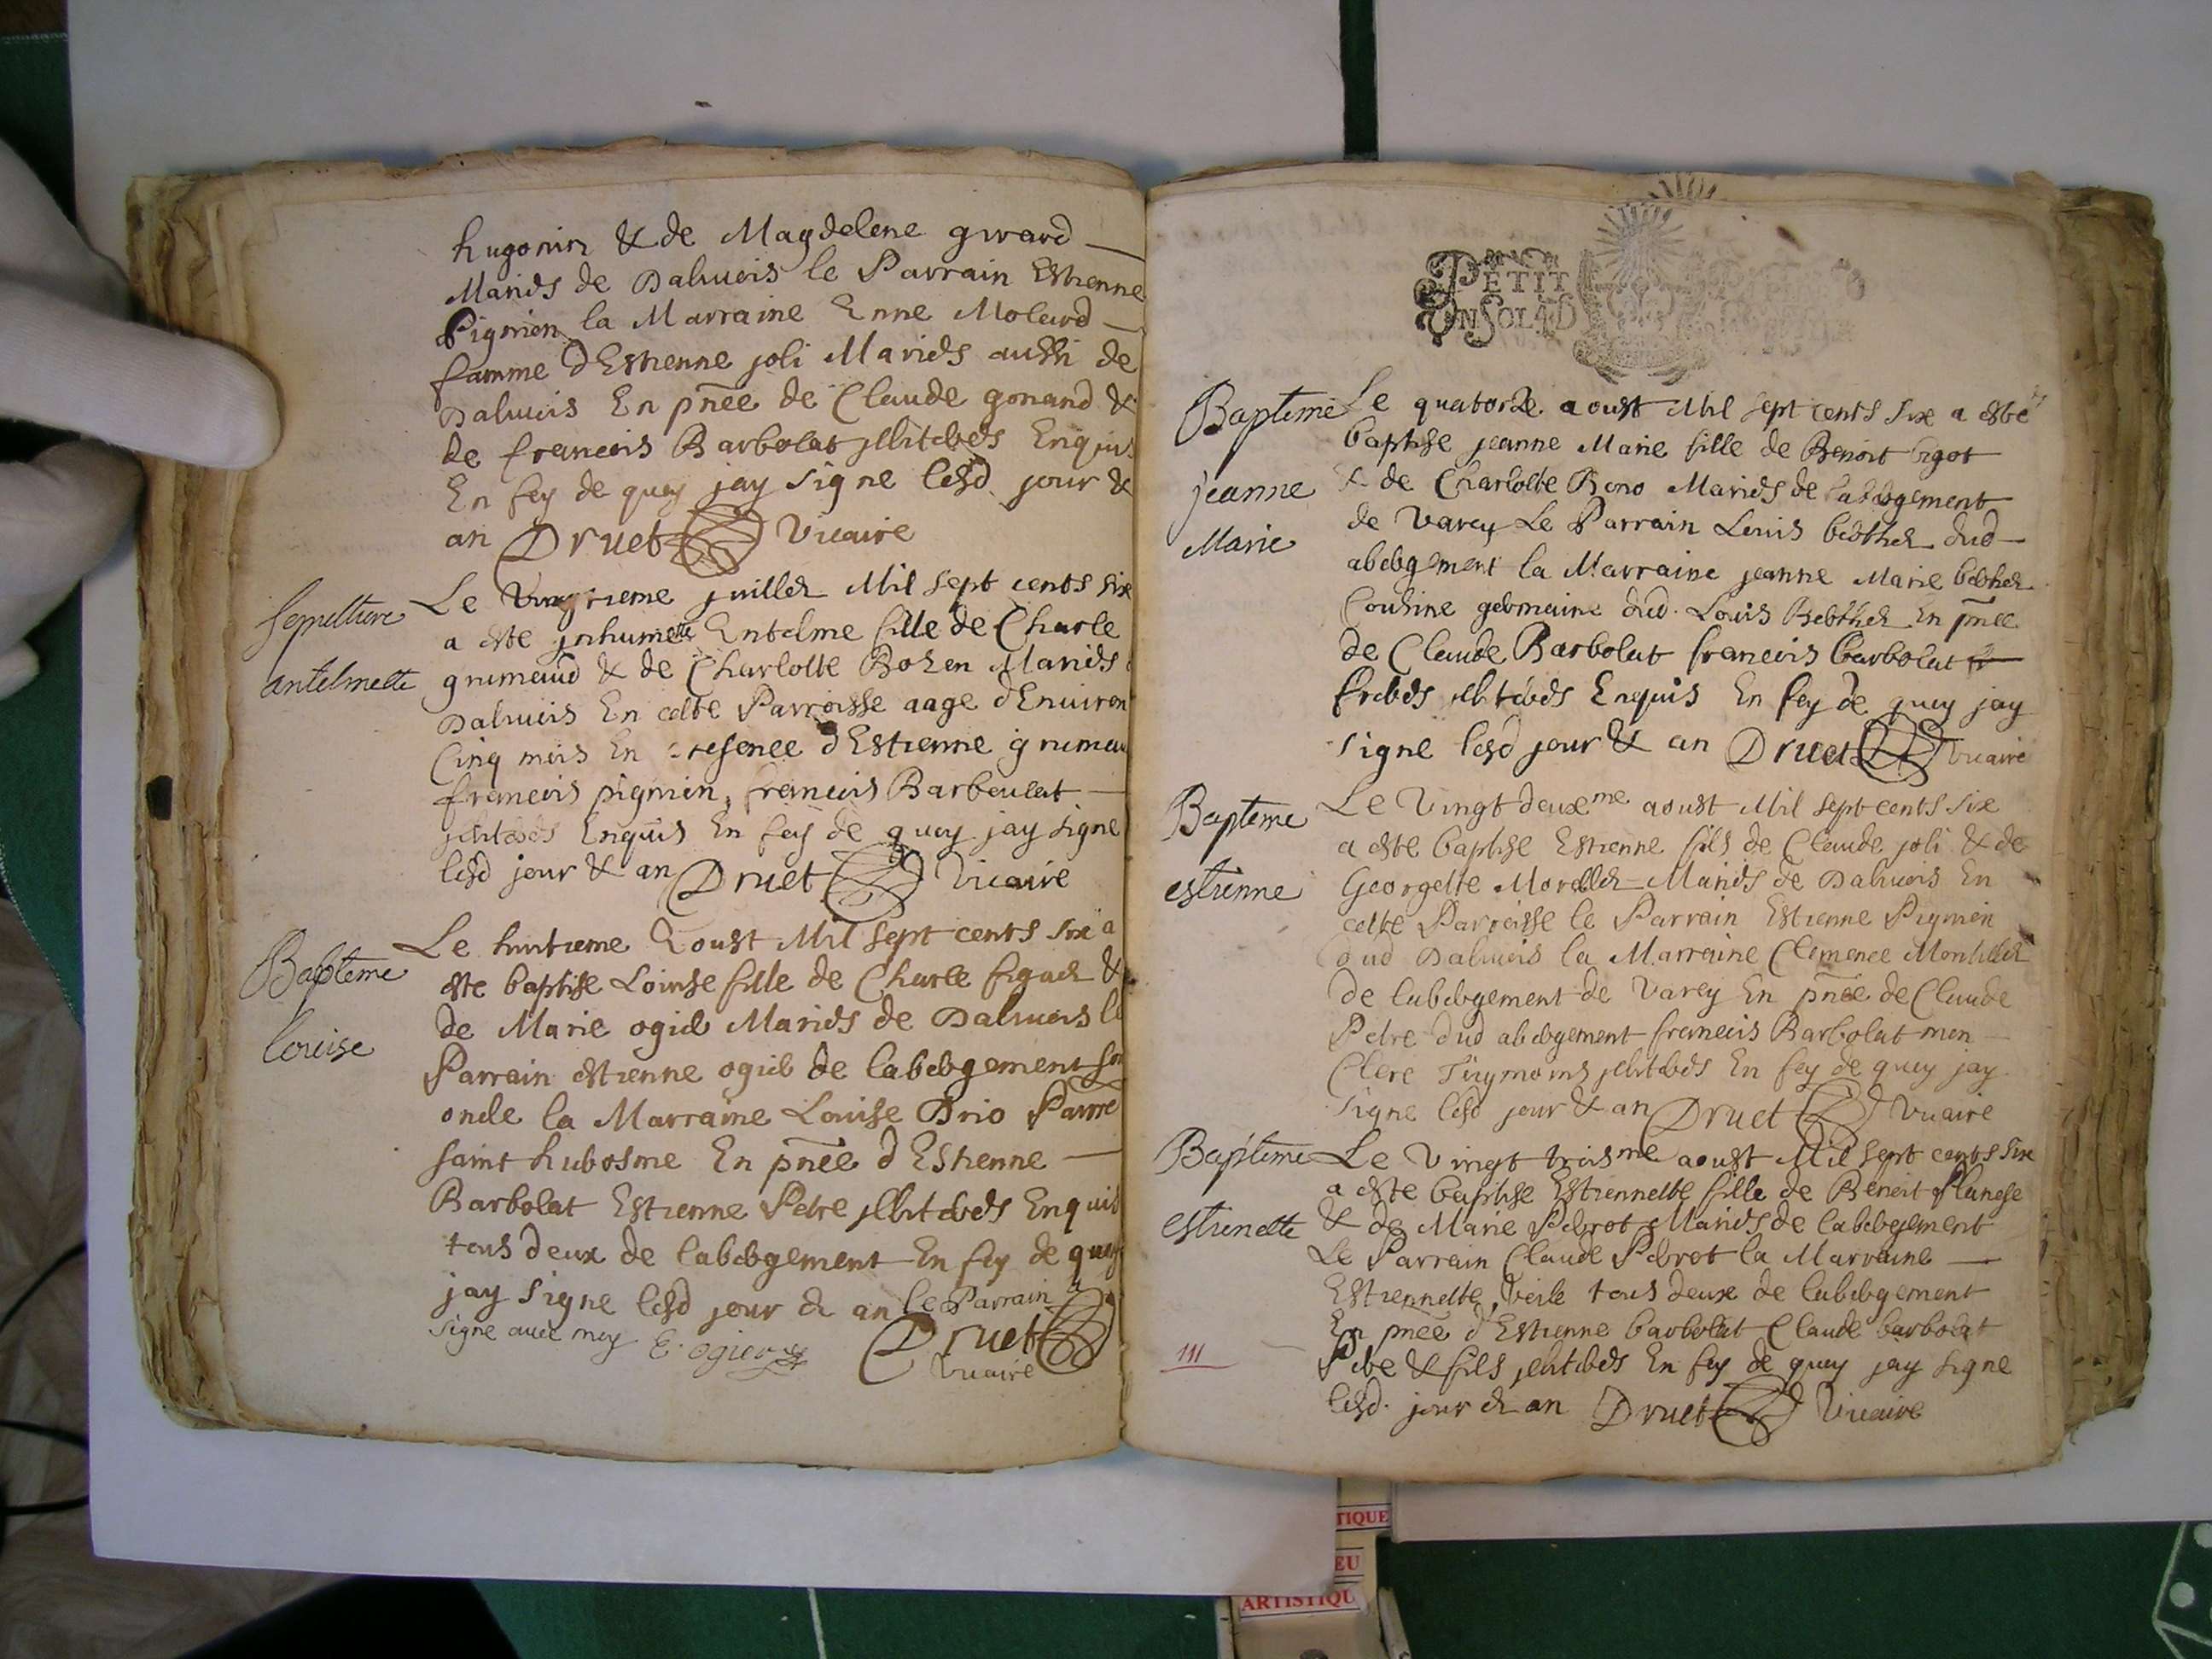 hugonin & de Magdelene girard
Mariés de Dalivois le Parrain Estienne
Pignien la Marraine Enne Molard
famme d'Estienne joli Mariés aussi de
Dalivois En pnẽe de Claude gonand &
de francois Barbolat jllitérés Enquis
En foy de quoy jay signe lesd jour &
an Druet Vicaire
sepulture
antelmette
Le juillet Mil sept cents six
a esté jnhumette Entelme fille de Charle
grimaud & de Charlotte Bozen Mariés
Dalivois En cette Parroisse aage d'Enuiron
Cinq mois En presence d'Estienne grimau
francois pignien, francois Barboulat
jllitérés Enquis En foy de quoy jay signe
lesd jour & an Druet Vicaire
Bapteme
louise
Le huitieme Aoust Mil sept cents six a
esté baptise Louise fille de Charle figuet &
de Marie ogier Mariés de Dalivois le
Parrain estienne ogier de labergement son
oncle la Marraine Louise Brio
saint hierosme En pnẽe d'Estienne
Barbolat Estienne Petre jllitérés Enquis
tous deux de labergement En foy de quoy
jay signe lesd jour & an le Parrain a
signe avec moy E. ogier Druet
Vicaire
PETIT
UN SOL 4 D
Bapteme
jeanne
Marie
Le quatorze aoust Mil sept cents six a esté
baptise jeanne Marie fille de Benoit bigot
& de Charlotte Bono Mariés de labergement
de Varey Le Parrain Louis berthet dud
abergement la Marraine jeanne Marie berthet
Cousine germaine dud. Louis Berthet En pnẽe
de Claude Barbolat francois barbolat
freres jllitérés Enquis En foy de quoy jay
signe lesd jour & an Druet Vicaire
Bapteme
estienne
Le Vingt deuxme aoust Mil sept cents six
a esté baptise Estienne fils de Claude joli & de
Georgette Morellet Mariés de Dalivois En
cette Parroisse le Parrain Estienne Pignien
dud Dalivois la Marraine Clemence Montillet
de labergement de Varey En pnẽe de Claude
Petre dud abergement francois Barbolat mon
Clerc Tiymoins jllitérés En foy de quoy jay
signe lesd jour & an Druet Vicaire
Bapteme
estienette
111
Le Vingt troisme aoust Mil sept cents six
a esté baptise Estiennette fille de Benoit
& de Marie Perrot Mariés de labergement
Le Parrain Claude Perrot la Marraine
Estiennette tous deux de labergement
En pnẽe d'Estienne barbolat Claude barbolat
Pere & fils jllitérés En foy de quoy jay signe
lesd. jour & an Druet Vicaire